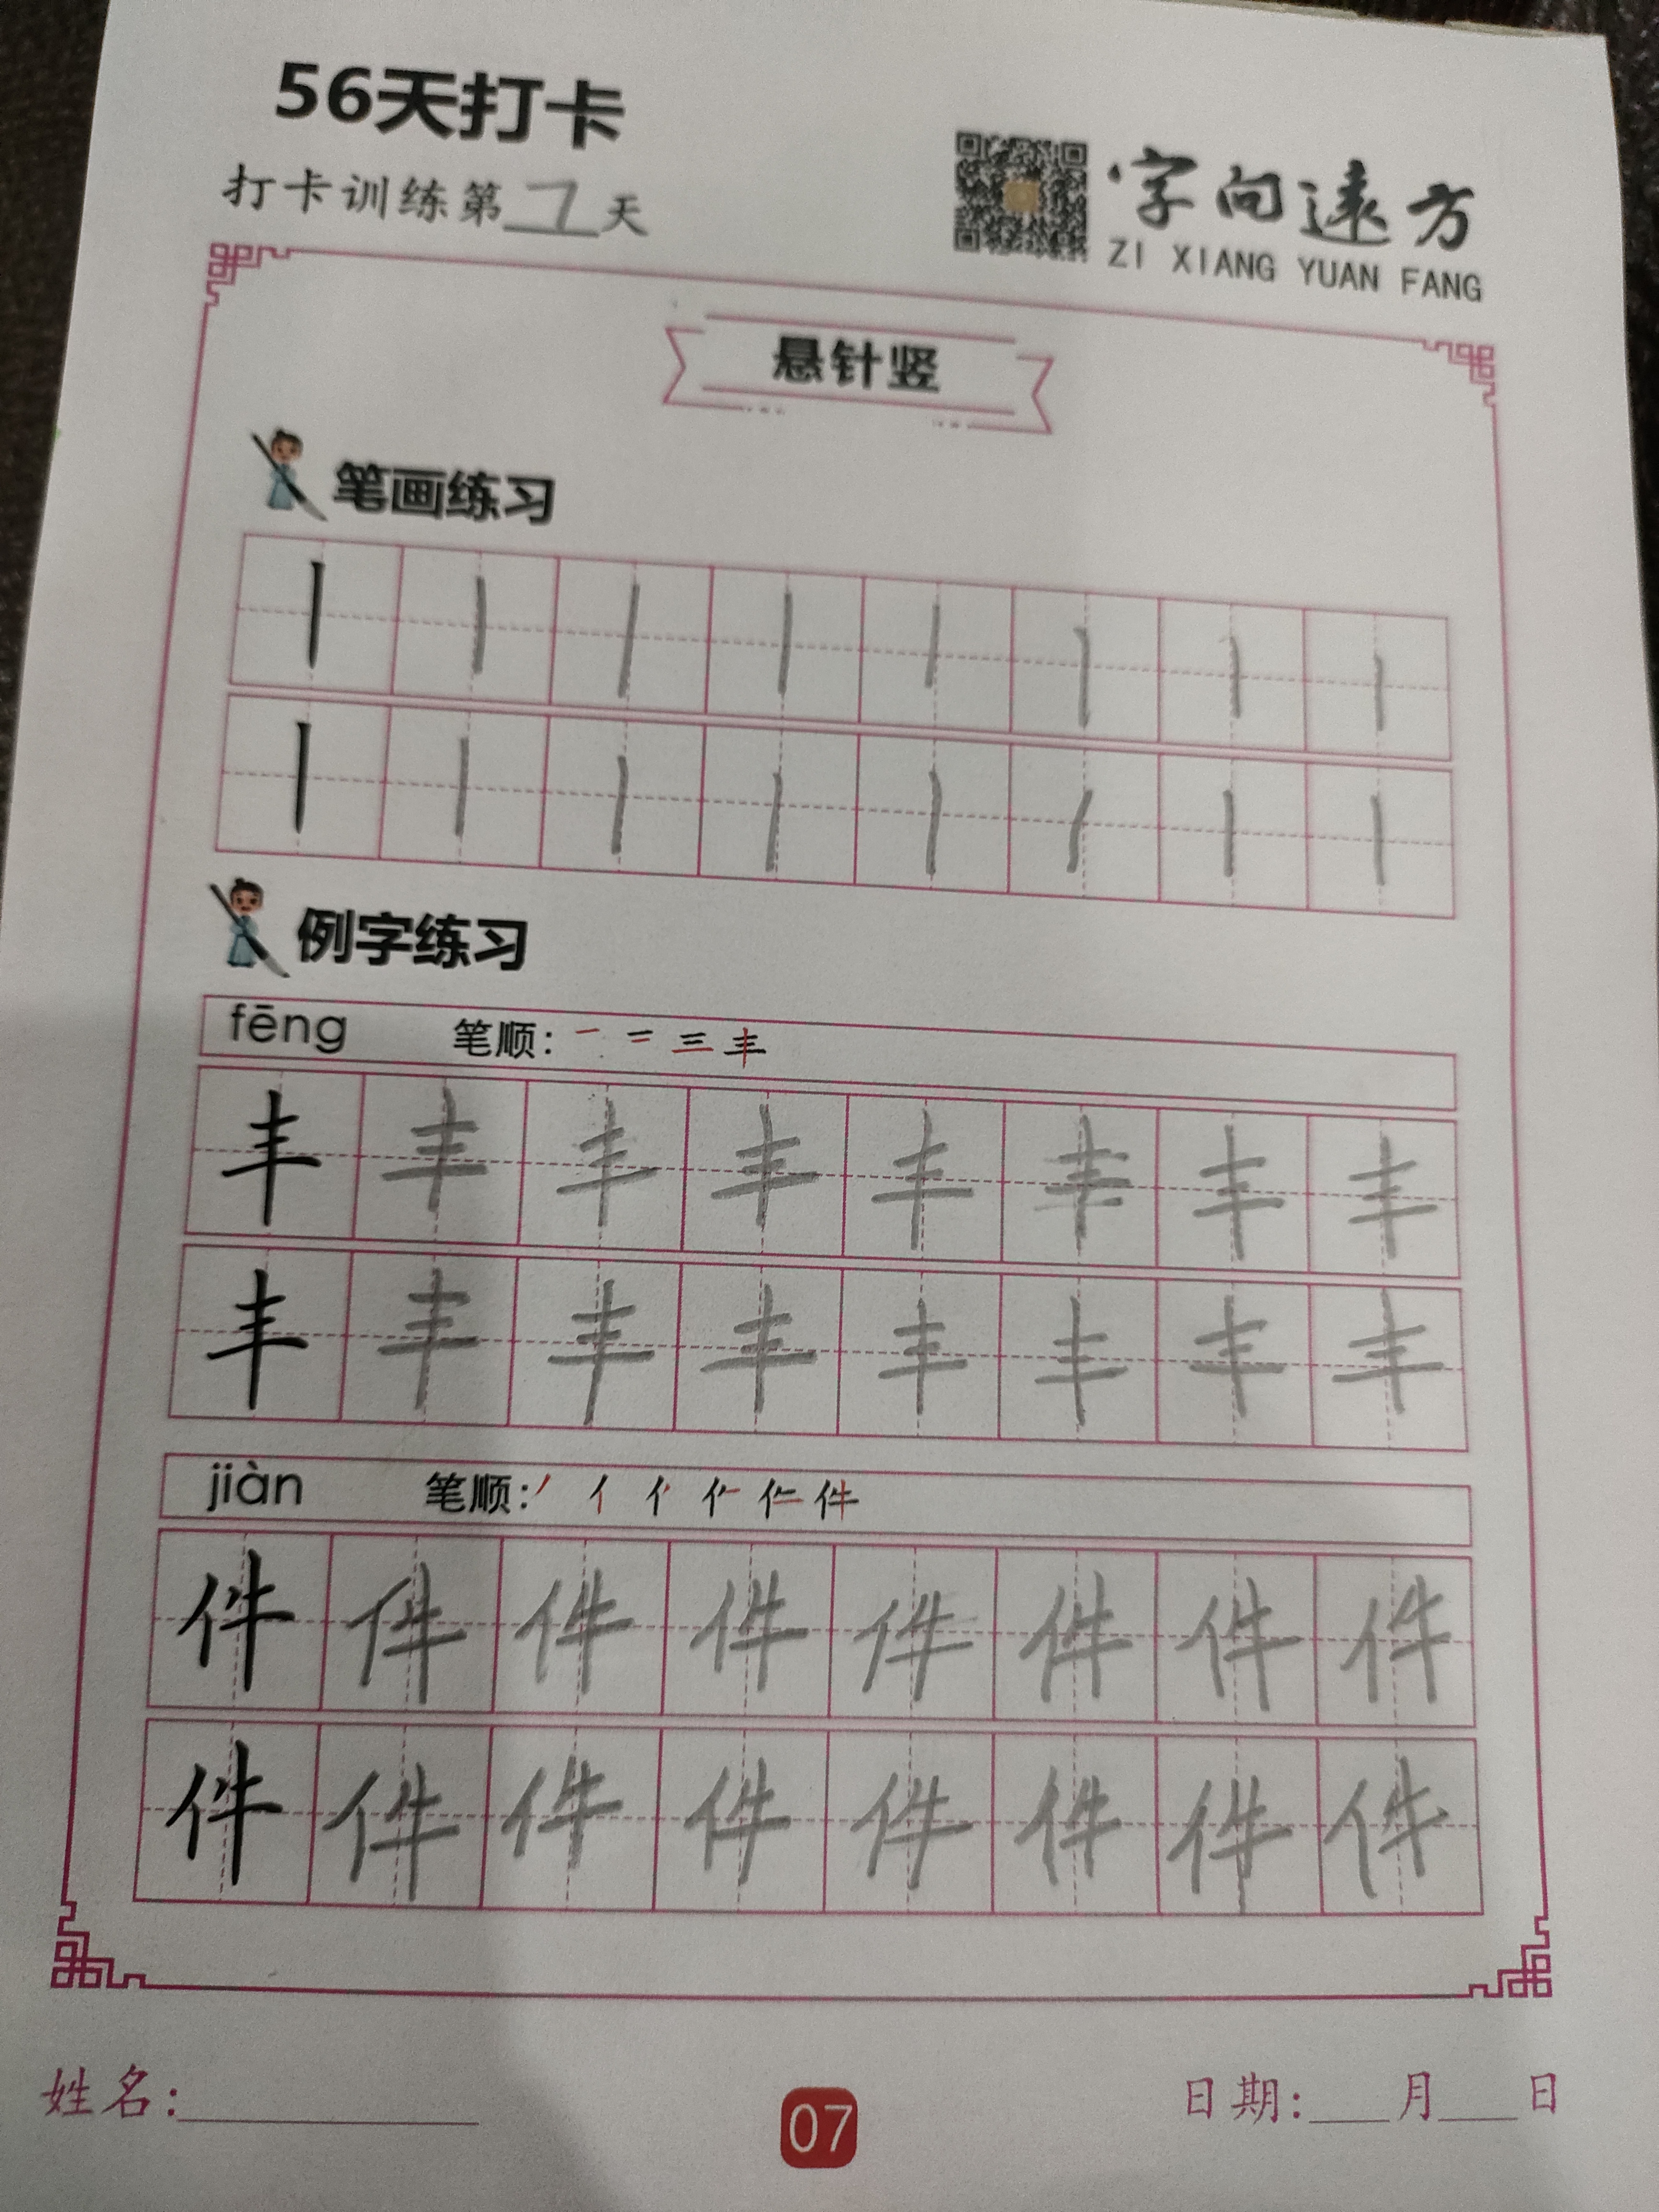 56天打卡
打卡训练第7天
字向远方
ZI XIANG YUAN FANG
悬针竖
笔画练习
丨丨丨丨丨丨丨丨
丨丨丨丨丨丨丨丨
例字练习
fēng 笔顺: 一 二 三 丰
丰丰丰丰丰丰丰丰
丰丰丰丰丰丰丰丰
jiàn 笔顺: 丿 亻 件
件件件件件件件件
件件件件件件件件
姓名: 07 日期: 月 日